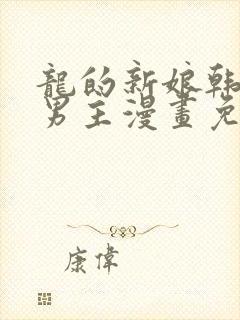 龍的新娘韩
男主漫畫免
康偉